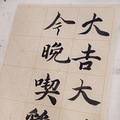 大吉大
今晚喫雞